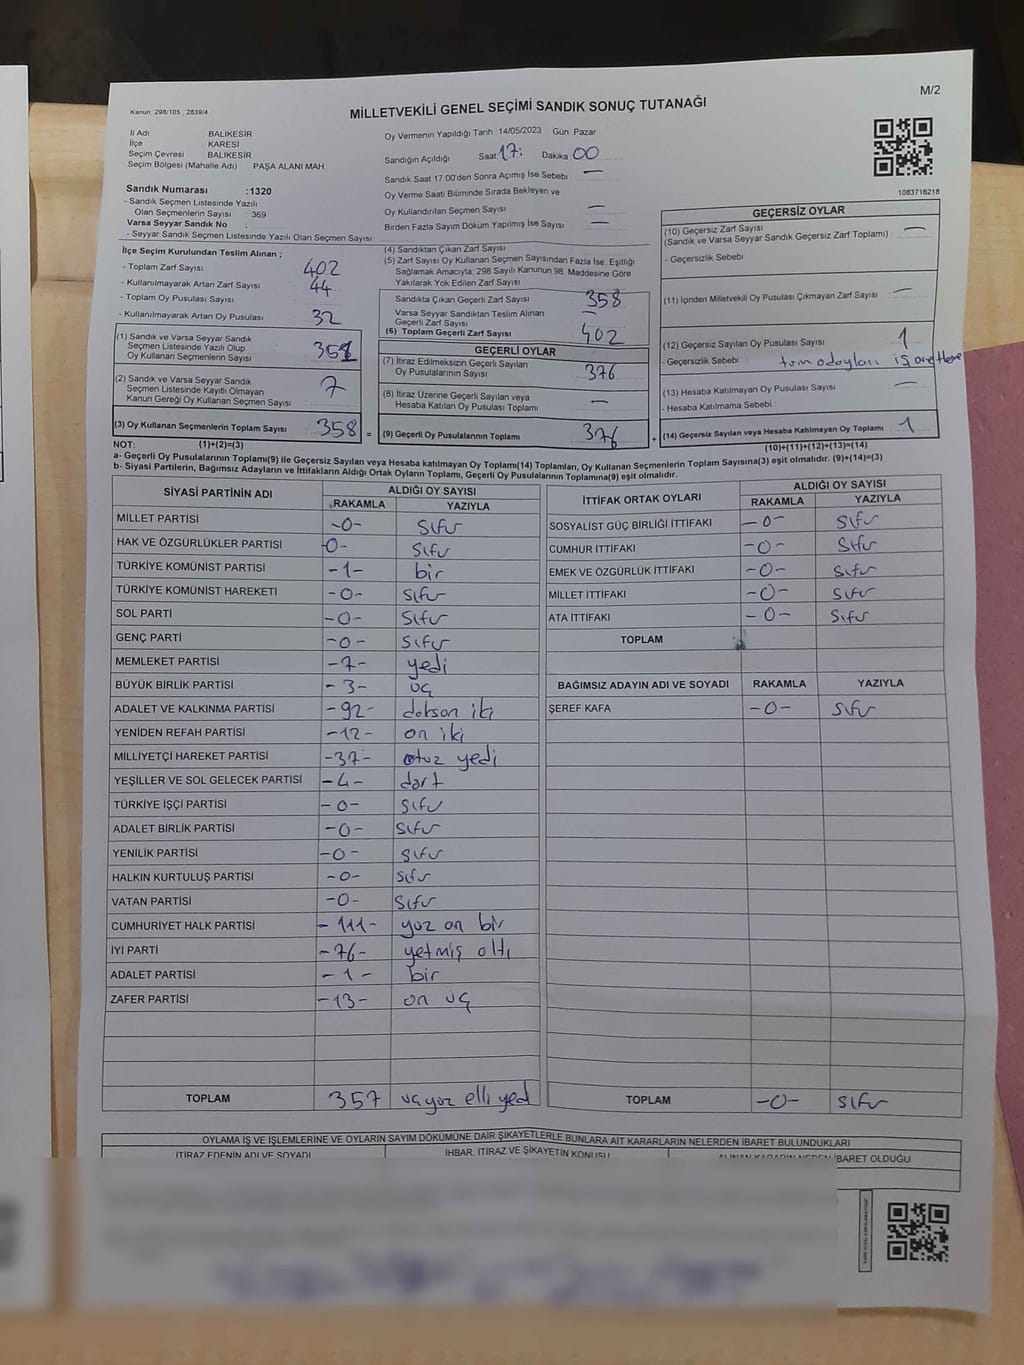 M/2
Kanun: 298/105 , 2839/4
MİLLETVEKİLİ GENEL SEÇİMİ SANDIK SONUÇ TUTANAĞI
İl Adı BALIKESİR
İlçe KARESİ
Seçim Çevresi BALIKESİR
Seçim Bölgesi (Mahalle Adı) PAŞA ALANI MAH.
Sandık Numarası :1320
- Sandık Seçmen Listesinde Yazılı
Olan Seçmenlerin Sayısı : 369
Varsa Seyyar Sandık No :
- Seyyar Sandık Seçmen Listesinde Yazılı Olan Seçmen Sayısı :
Oy Vermenin Yapıldığı Tarih :14/05/2023 Gün: Pazar
Sandığın Açıldığı Saat 17: Dakika 00
Sandık Saat 17:00'den Sonra Açımış İse Sebebi : —
Oy Verme Saati Bitiminde Sırada Bekleyen ve
Oy Kullandırılan Seçmen Sayısı —
Birden Fazla Sayım Döküm Yapılmış İse Sayısı —
1083716218
İlçe Seçim Kurulundan Teslim Alınan ;
- Toplam Zarf Sayısı 402
- Kullanılmayarak Artan Zarf Sayısı 44
- Toplam Oy Pusulası Sayısı
- Kullanılmayarak Artan Oy Pusulası 32
(1) Sandık ve Varsa Seyyar Sandık
Seçmen Listesinde Yazılı Olup
Oy Kullanan Seçmenlerin Sayısı 351
(2) Sandık ve Varsa Seyyar Sandık
Seçmen Listesinde Kayıtlı Olmayan
Kanun Gereği Oy Kullanan Seçmen Sayısı 7
(3) Oy Kullanan Seçmenlerin Toplam Sayısı 358 =
(4) Sandıktan Çıkan Zarf Sayısı
(5) Zarf Sayısı Oy Kullanan Seçmen Sayısından Fazla İse, Eşitliği
Sağlamak Amacıyla, 298 Sayılı Kanunun 98. Maddesine Göre
Yakılarak Yok Edilen Zarf Sayısı
Sandıkta Çıkan Geçerli Zarf Sayısı 358
Varsa Seyyar Sandıktan Teslim Alınan —
Geçerli Zarf Sayısı
(6) Toplam Geçerli Zarf Sayısı 402
GEÇERLİ OYLAR
(7) İtiraz Edilmeksizin Geçerli Sayılan
Oy Pusulalarının Sayısı 376
(8) İtiraz Üzerine Geçerli Sayılan veya
Hesaba Katılan Oy Pusulası Toplamı —
(9) Geçerli Oy Pusulalarının Toplamı 376 +
GEÇERSİZ OYLAR
(10) Geçersiz Zarf Sayısı —
(Sandık ve Varsa Seyyar Sandık Geçersiz Zarf Toplamı) :
- Geçersizlik Sebebi
(11) İçinden Milletvekili Oy Pusulası Çıkmayan Zarf Sayısı —
(12) Geçersiz Sayılan Oy Pusulası Sayısı 1
- Geçersizlik Sebebi : tüm adayları
(13) Hesaba Katılmayan Oy Pusulası Sayısı —
- Hesaba Katılmama Sebebi :
(14) Geçersiz Sayılan veya Hesaba Katılmayan Oy Toplamı 1
NOT: (1)+(2)=(3) (10)+(11)+(12)+(13)=(14)
a- Geçerli Oy Pusulalarının Toplamı(9) ile Geçersiz Sayılan veya Hesaba katılmayan Oy Toplamı(14) Toplamları, Oy Kullanan Seçmenlerin Toplam Sayısına(3) eşit olmalıdır. (9)+(14)=(3)
b- Siyasi Partilerin, Bağımsız Adayların ve İttifakların Aldığı Ortak Oyların Toplamı, Geçerli Oy Pusulalarının Toplamına(9) eşit olmalıdır.
SİYASİ PARTİNİN ADI ALDIĞI OY SAYISI
RAKAMLA YAZIYLA
MİLLET PARTİSİ -0- sıfır
HAK VE ÖZGÜRLÜKLER PARTİSİ -0- sıfır
TÜRKİYE KOMÜNİST PARTİSİ -1- bir
TÜRKİYE KOMÜNİST HAREKETİ -0- sıfır
SOL PARTİ -0- sıfır
GENÇ PARTİ -0- sıfır
MEMLEKET PARTİSİ -7- yedi
BÜYÜK BİRLİK PARTİSİ -3- üç
ADALET VE KALKINMA PARTİSİ -92- doksan iki
YENİDEN REFAH PARTİSİ -12- on iki
MİLLİYETÇİ HAREKET PARTİSİ -37- otuz yedi
YEŞİLLER VE SOL GELECEK PARTİSİ -4- dört
TÜRKİYE İŞÇİ PARTİSİ -0- sıfır
ADALET BİRLİK PARTİSİ -0- sıfır
YENİLİK PARTİSİ -0- sıfır
HALKIN KURTULUŞ PARTİSİ -0- sıfır
VATAN PARTİSİ -0- sıfır
CUMHURİYET HALK PARTİSİ -111- yüz on bir
İYİ PARTİ -76- yetmiş altı
ADALET PARTİSİ -1- bir
ZAFER PARTİSİ -13- on üç
TOPLAM 357 üçyüz elli yedi
İTTİFAK ORTAK OYLARI ALDIĞI OY SAYISI
RAKAMLA YAZIYLA
SOSYALİST GÜÇ BİRLİĞİ İTTİFAKI -0- sıfır
CUMHUR İTTİFAKI -0- sıfır
EMEK VE ÖZGÜRLÜK İTTİFAKI -0- sıfır
MİLLET İTTİFAKI -0- sıfır
ATA İTTİFAKI -0- sıfır
TOPLAM
BAĞIMSIZ ADAYIN ADI VE SOYADI RAKAMLA YAZIYLA
ŞEREF KAFA -0- sıfır
TOPLAM -0- sıfır
OYLAMA İŞ VE İŞLEMLERİNE VE OYLARIN SAYIM DÖKÜMÜNE DAİR ŞİKAYETLERLE BUNLARA AİT KARARLARIN NELERDEN İBARET BULUNDUKLARI
İTİRAZ EDENİN ADI VE SOYADI İHBAR, İTİRAZ VE ŞİKAYETİN KONUSU ALINAN KARARIN NEDEN İBARET OLDUĞU